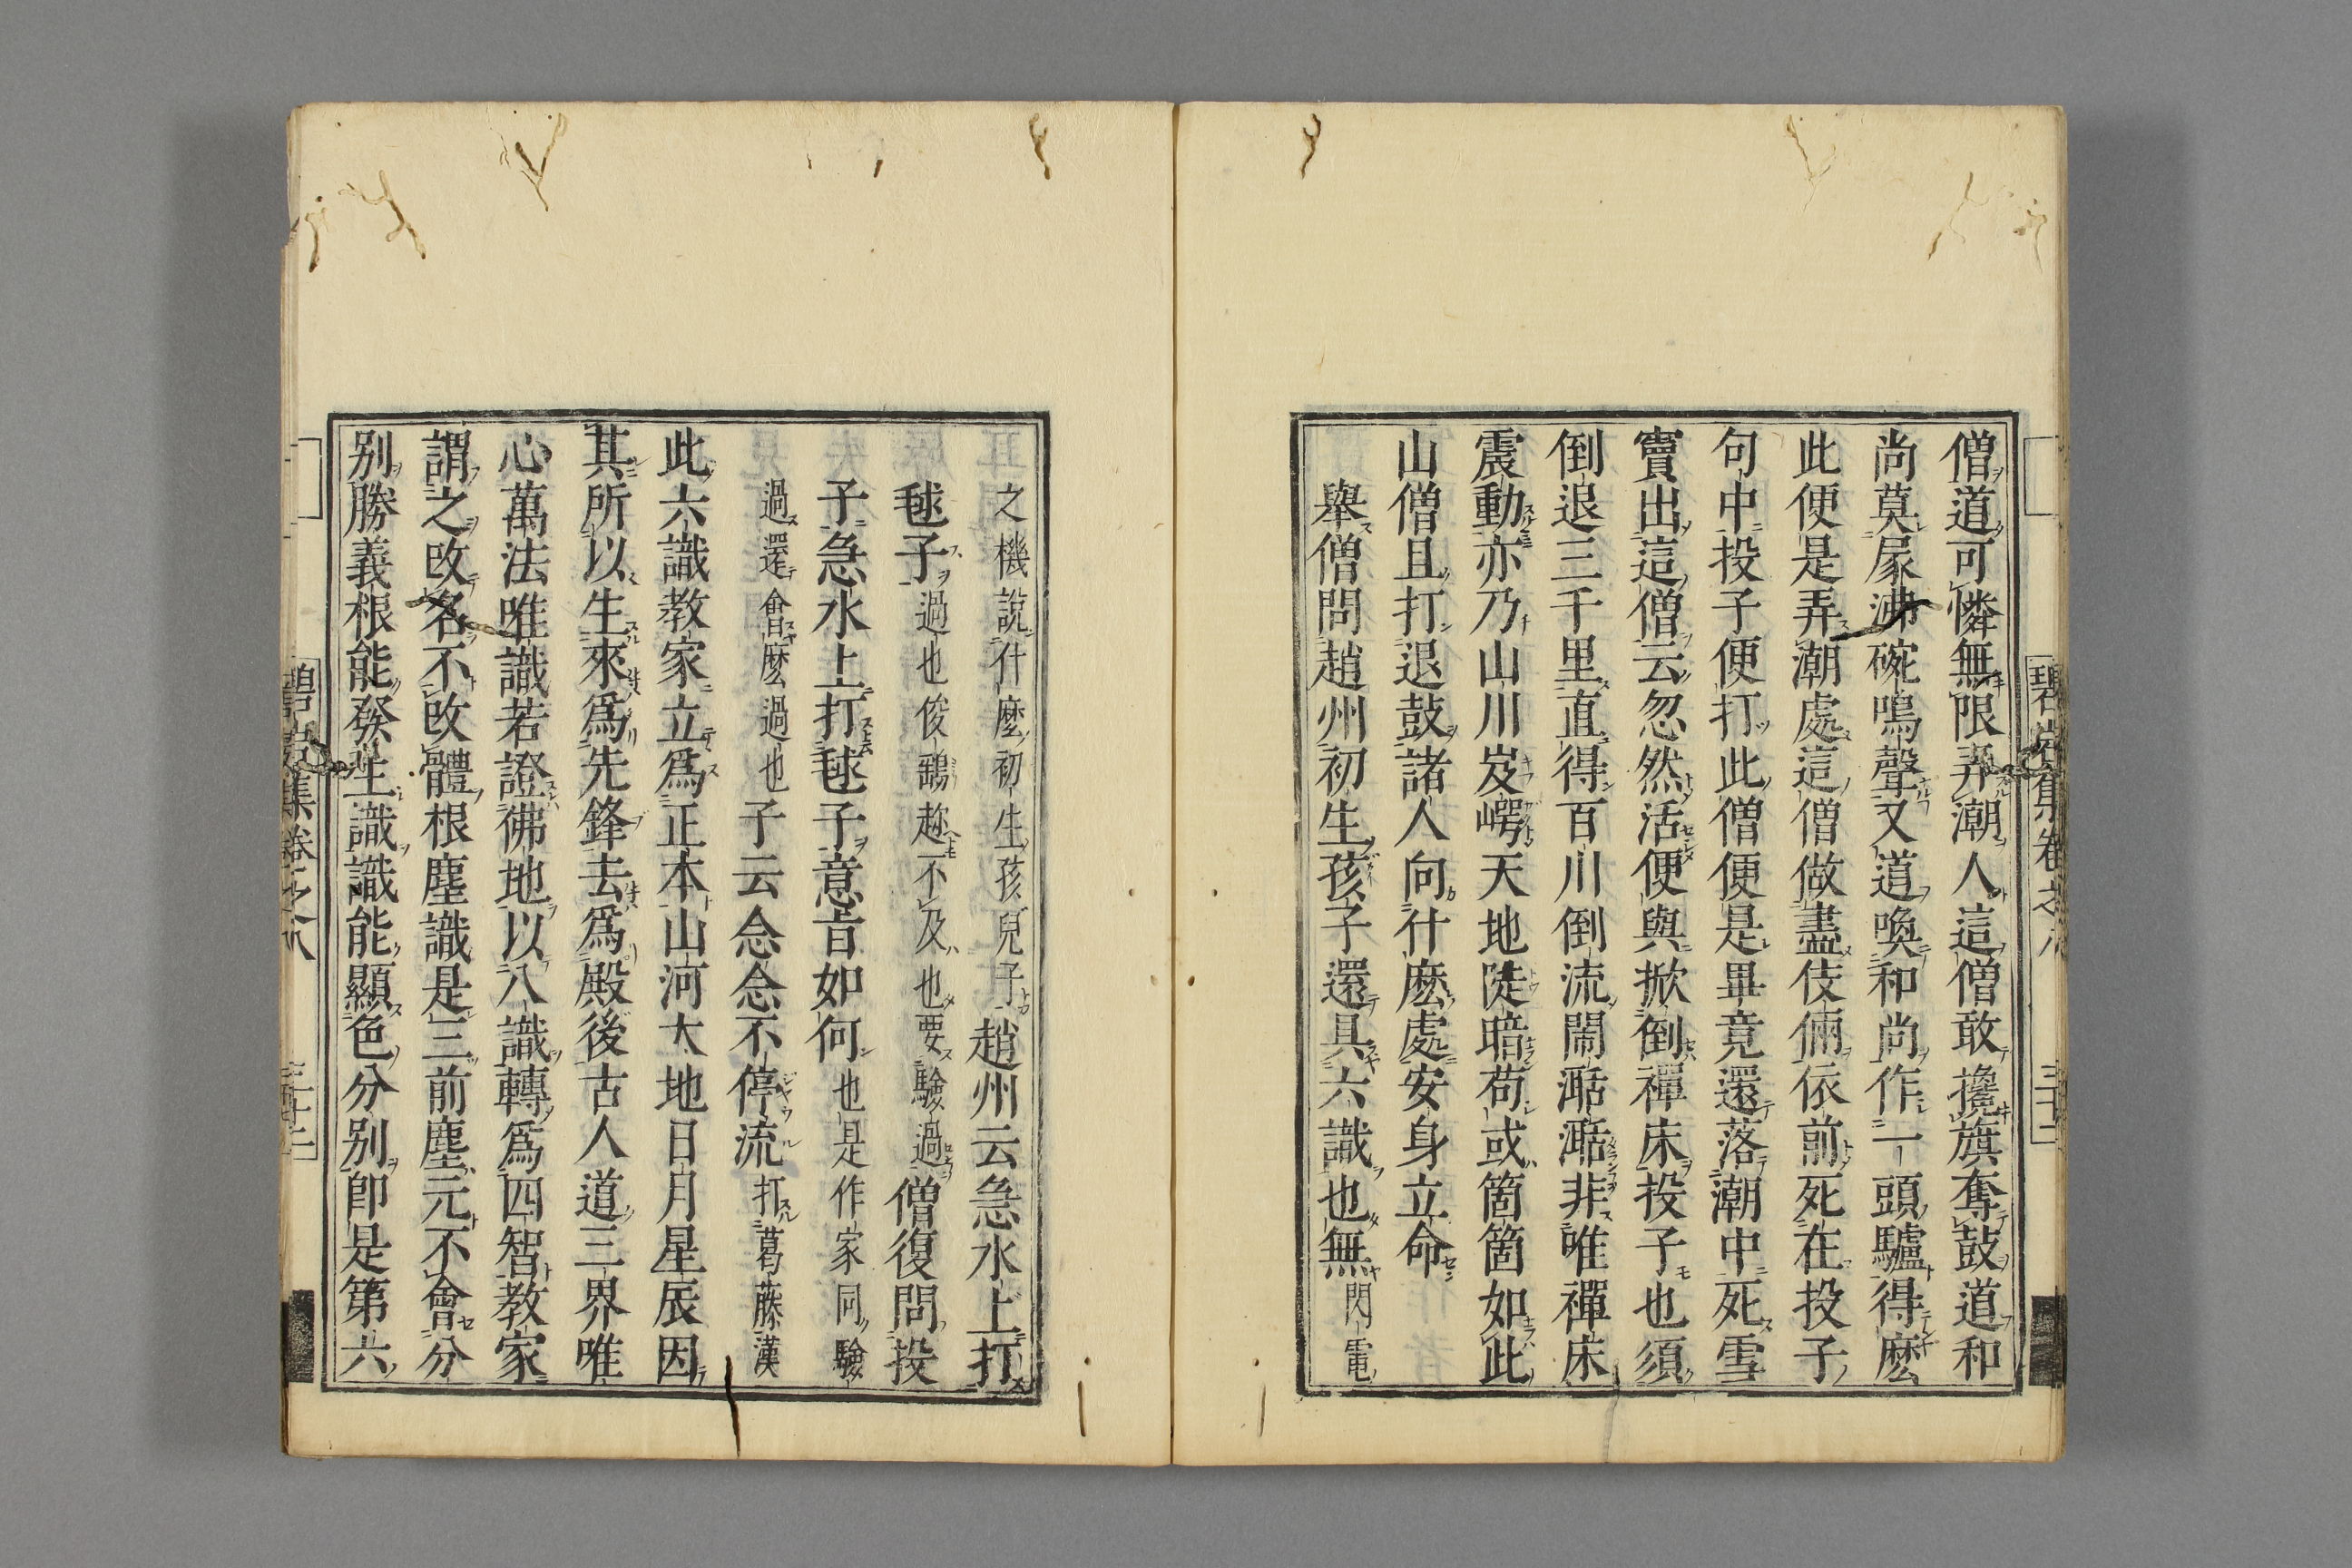 僧道可憐無限弄潮人這僧敢攙旗奪鼓道和
尚莫㞘沸碗鳴聲又道喚和尚作一頭驢得麽
此便是弄潮處這僧做盡伎倆依前死在投子
句中投子便打此僧便是畢竟還落潮中死雪
竇出這僧云忽然活便與掀倒禪床投子也須
倒退三千里直得百川倒流鬧㶁㶁非唯禪床
震動亦乃山川岌崿天地陡暗苟或箇箇如此
山僧且打退鼓諸人向什麽處安身立命
舉僧問趙州初生孩子還具六識也無閃電
之機說什麽初生孩兒子趙州云急水上打
毬子過也俊鷂趂不及也要驗過僧復問投
子急水上打毬子意旨如何也是作家同驗
過還會麽過也子云念念不停流打葛藤漢
此六識教家立爲正本山河大地日月星辰因
其所以生來爲先鋒去爲殿後古人道三界唯
心萬法唯識若證佛地以八識轉爲四智教家
謂之改名不改體根塵識是三前塵元不會分
別勝義根能發生識識能顯色分別即是第六
碧岩集卷之八